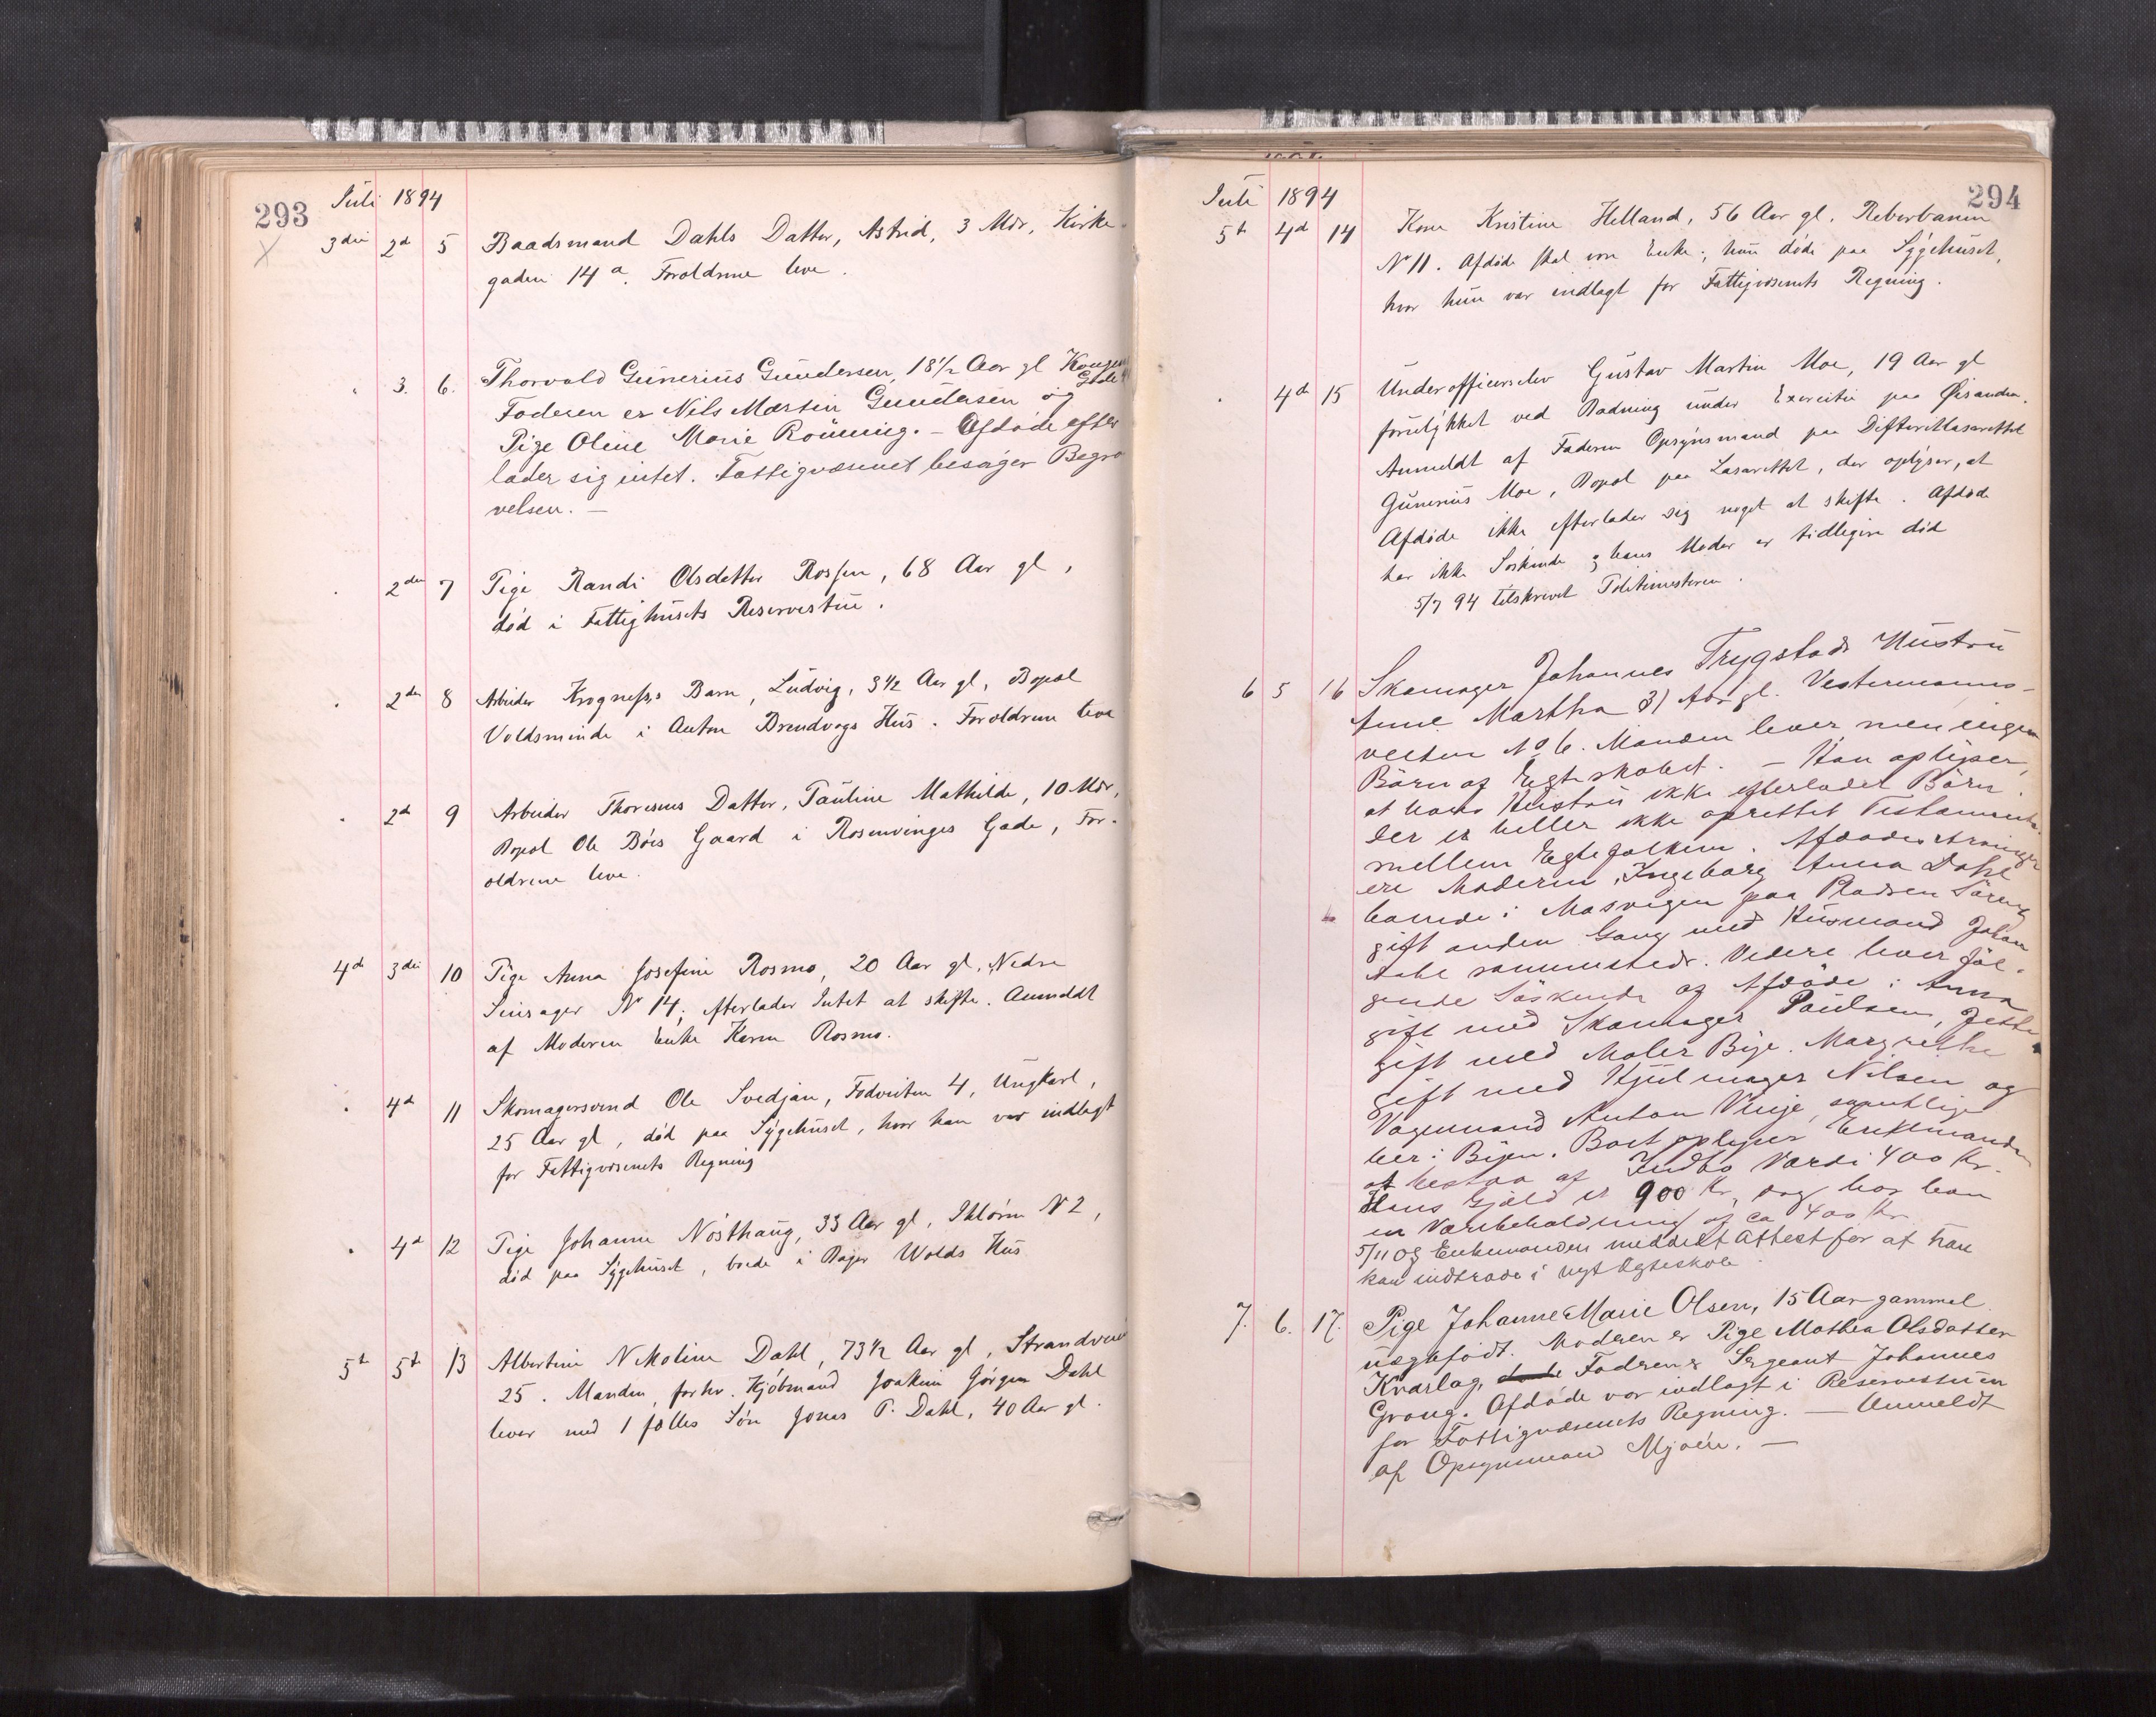 293
Juli 1894
3die 2d 5 Baadsmand Dahls Datter, Astrid, 3 Mdr, Kirke-
gaden 14 a. Forældrene leve.
" 3. 6. Thorvald Gunerius Gundersen, 18 1/2 Aar gl Kongens
Gade
Faderen er Nils Martin Gundersen og
Pige Oline Marie Rønning. – Afdøde efter
lader sig intet. Fattigvæsenet besørger Begra
velsen. –
" 2den 7 Pige Randi Olsdatter Rosten, 68 Aar gl,
død i Fattighusets Reservestue.
" 2den 8 Arbeider Krogness's Barn, Ludvig, 3 1/2 Aar gl, Bopæl
Voldsminde i Anton Brendvogs Hus. Forældrene leve
" 2d 9 Arbeider Thoresens Datter, Pauline Mathilde, 10 Mdr,
Bopæl Ole Bøes Gaard i Rosenvinges Gade, For-
ældrene leve.
4d 3die 10 Pige Anna Josefine Rosmo, 20 Aar gl, Nedre
Singsager No 14; efterlader Intet at skifte. Anmeldt
af Moderen Enke Karen Rosmo.
" 4d 11 Skomagersvend Ole Svedjan, Fodveiten 4, Ungkarl,
25 Aar gl, død paa Sygehuset, hvor han var indlagt
for Fattigvæsenets Regning
" 4d 12 Pige Johanna Nøsthaug, 33 Aar gl, Ihløren No 2,
død paa Sygehuset, boede i Bager Wolds Hus
5t 5t 13 Albertine Nikoline Dahl, 73 1/2 Aar gl, Strandveien
25. Manden, forhv. Kjøbmand Joakim Jørgen Dahl
lever med 1 fælles Søn Jonas P. Dahl, 40 Aar gl.
294
Juli 1894
5t 4d 14 Kone Kristine Helland, 56 Aar gl. Reberbanen
No 11. Afdøde skal være Enke; hun døde paa Sygehuset,
hvor hun var indlagt for Fattigvæsenets Regning.
" 4d 15 Underofficerselev Gustav Martin Moe, 19 Aar gl
forulykket ved Badning under Exercitie paa Ørsanden.
Anmeldt af Faderen Opsynsmand paa Difteritlasarettet
Gunerius Moe, Bopæl paa Lasarettet, der oplyser, at
Afdøde ikke efterlader sig noget at skifte. Afdøde
har ikke Søskende og hans Moder er tidligere død
5/7 94 tilskrevet Politimesteren.
6 5 16 Skomager Johannes Trygstads Hustru
Anne Martha 31 Aar gl. Vestermanns-
veiten No 6. Manden lever, men ingen
Børn af Egteskabet. – Han oplyser,
at hans Hustru ikke efterlader Børn.
Der er heller ikke oprettet Testamente
mellem Egtefolkene. Afdødes Arvinger
ere Moderen, Ingeborg Anna Dahl
boende i Mosvigen paa Pladsen
gift anden Gang med Husmand Johan
Dahl sammesteds. Videre lever føl-
gende Søskende af Afdøde: Anna
gift med Skomager Paulsen, Jette
gift med Maler Bye. Margrethe
gift med Hjulmager Nilsen og
Vognmand Anton Vinje, samtlige
her i Byen. Boet oplyser Enkemanden
at bestaa af Indbo Værdi 400 Kr.
Hans Gjæld er 900 Kr, dog har han
en Varebeholdning af ca 400 Kr
5/11 08 Enkemanden meddelt Attest for at han
kan indtræde i nyt Egteskab.
7. 6. 17. Pige Johanne Marie Olsen, 15 Aar gammel
uægtefødt. Moderen er Pige Mathea Olsdatter
Kvarlag, Faderen er Sergeant Johannes
Grong. Afdøde var indlagt i Reservestuen
for Fattigvæsenets Regning. – Anmeldt
af Opsynsmand Mjøen. –